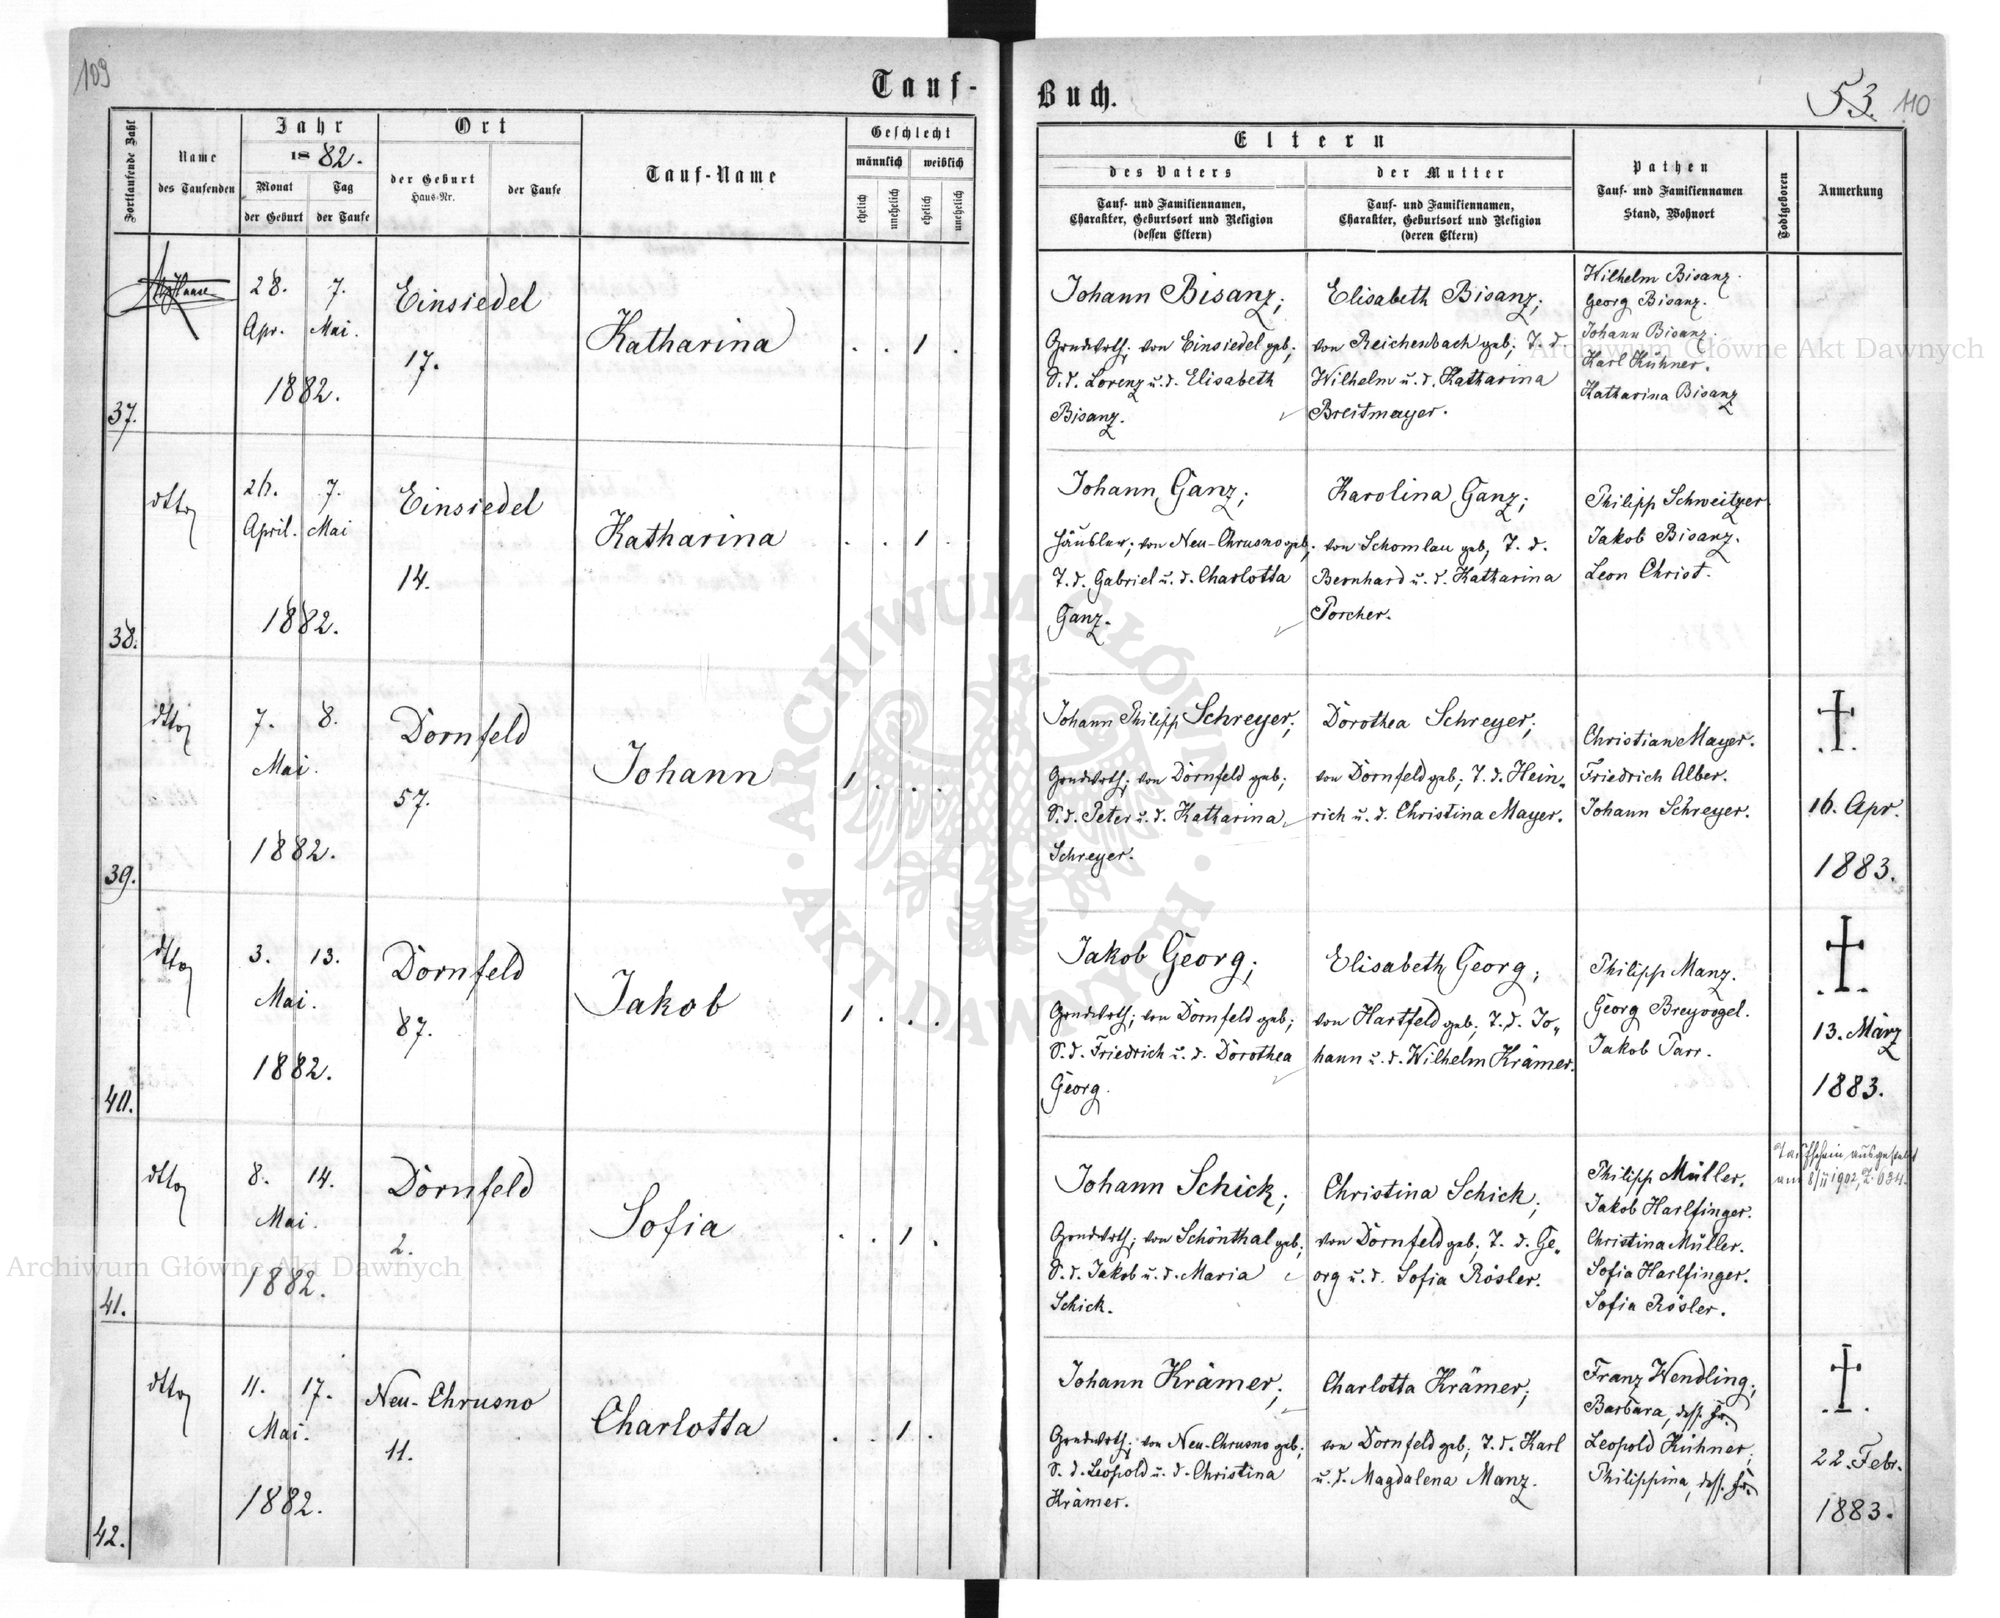 109
Tauf-
Fortlaufende Zahl
Name
des Taufenden
Jahr
1882.
Monat
der Geburt
Tag
der Taufe
Ort
der Geburt
Haus-Nr.
der Taufe
Tauf-Name
Geschlecht
männlich
weiblich
ehelich
unehelich
ehelich
unehelich
37.
28.
Apr.
7.
Mai.
1882.
Einsiedel
17.
Katharina
. . 1 .
38.
dtto
26.
April.
7.
Mai
1882.
Einsiedel
14.
Katharina
. . 1 .
39.
dtto
7.
8.
Mai.
1882.
Dornfeld
57.
Johann
1 . . .
40.
dtto
3.
13.
Mai.
1882.
Dornfeld
87.
Jakob
1 . . .
41.
dtto
8.
14.
Mai.
1882.
Dornfeld
2.
Sofia
. . 1 .
42.
dtto
11.
17.
Mai.
1882.
Neu-Chrusno
11.
Charlotta
. . 1 .
Buch.
53.
110
Eltern
des Vaters
Tauf- und Familiennamen,
Charakter, Geburtsort und Religion
(dessen Eltern)
der Mutter
Tauf- und Familiennamen,
Charakter, Geburtsort und Religion
(deren Eltern)
Pathen
Tauf- und Familiennamen
Stand, Wohnort
Todtgeboren
Anmerkung
Johann Bisanz;
Grndwrth; von Einsiedel geb;
S. d. Lorenz u. d. Elisabeth
Bisanz.
Elisabeth Bisanz;
von Reichenbach geb; T. d.
Wilhelm u. d. Katharina
Breitmayer.
Wilhelm Bisanz.
Georg Bisanz.
Johann Bisanz.
Karl Kühner.
Katharina Bisanz
Johann Ganz;
Häusler; von Neu-Chrusno geb;
T. d. Gabriel u. d. Charlotta
Ganz.
Karolina Ganz;
von Schomlau geb; T. d.
Bernhard u. d. Katharina
Porcher.
Philipp Schweitzer
Jakob Bisanz.
Leon Christ.
Johann Philipp Schreyer;
Grndwrth; von Dornfeld geb;
S. d. Peter u. d. Katharina
Schreyer.
Dorothea Schreyer;
von Dornfeld geb; T. d. Hein-
rich u. d. Christina Mayer.
Christian Mayer.
Friedrich Alber.
Johann Schreyer.
16. Apr.
1883.
Jakob Georg;
Grndwrth; von Dornfeld geb;
S. d. Friedrich u. d. Dorothea
Georg.
Elisabeth Georg;
von Hartfeld geb; T. d. Jo-
hann u. d. Wilhelm Krämer.
Philipp Manz.
Georg Breyvogel.
Jakob Parr.
13. März
1883.
Johann Schick;
Grndwrth; von Schönthal geb;
S. d. Jakob u. d. Maria
Schick.
Christina Schick;
von Dornfeld geb; T. d. Ge-
org u. d. Sofia Rösler.
Philipp Müller.
Jakob Harlfinger.
Christina Müller.
Sofia Harlfinger.
Sofia Rösler.
Taufschein ausgestellt
am 8/II 1902, Z. 634.
Johann Krämer;
Grndwrth; von Neu-Chrusno geb;
S. d. Leopold u. d. Christina
Krämer.
Charlotta Krämer;
von Dornfeld geb; T. d. Karl
u. d. Magdalena Manz.
Franz Wendling;
Barbara, dess. Fr.
Leopold Kühner;
Philippina, dess. Fr.
22. Febr.
1883.
Archiwum Główne Akt Dawnych
Archiwum Główne Akt Dawnych
ARCHIWUM GŁÓWNE · AKT DAWNYCH ·